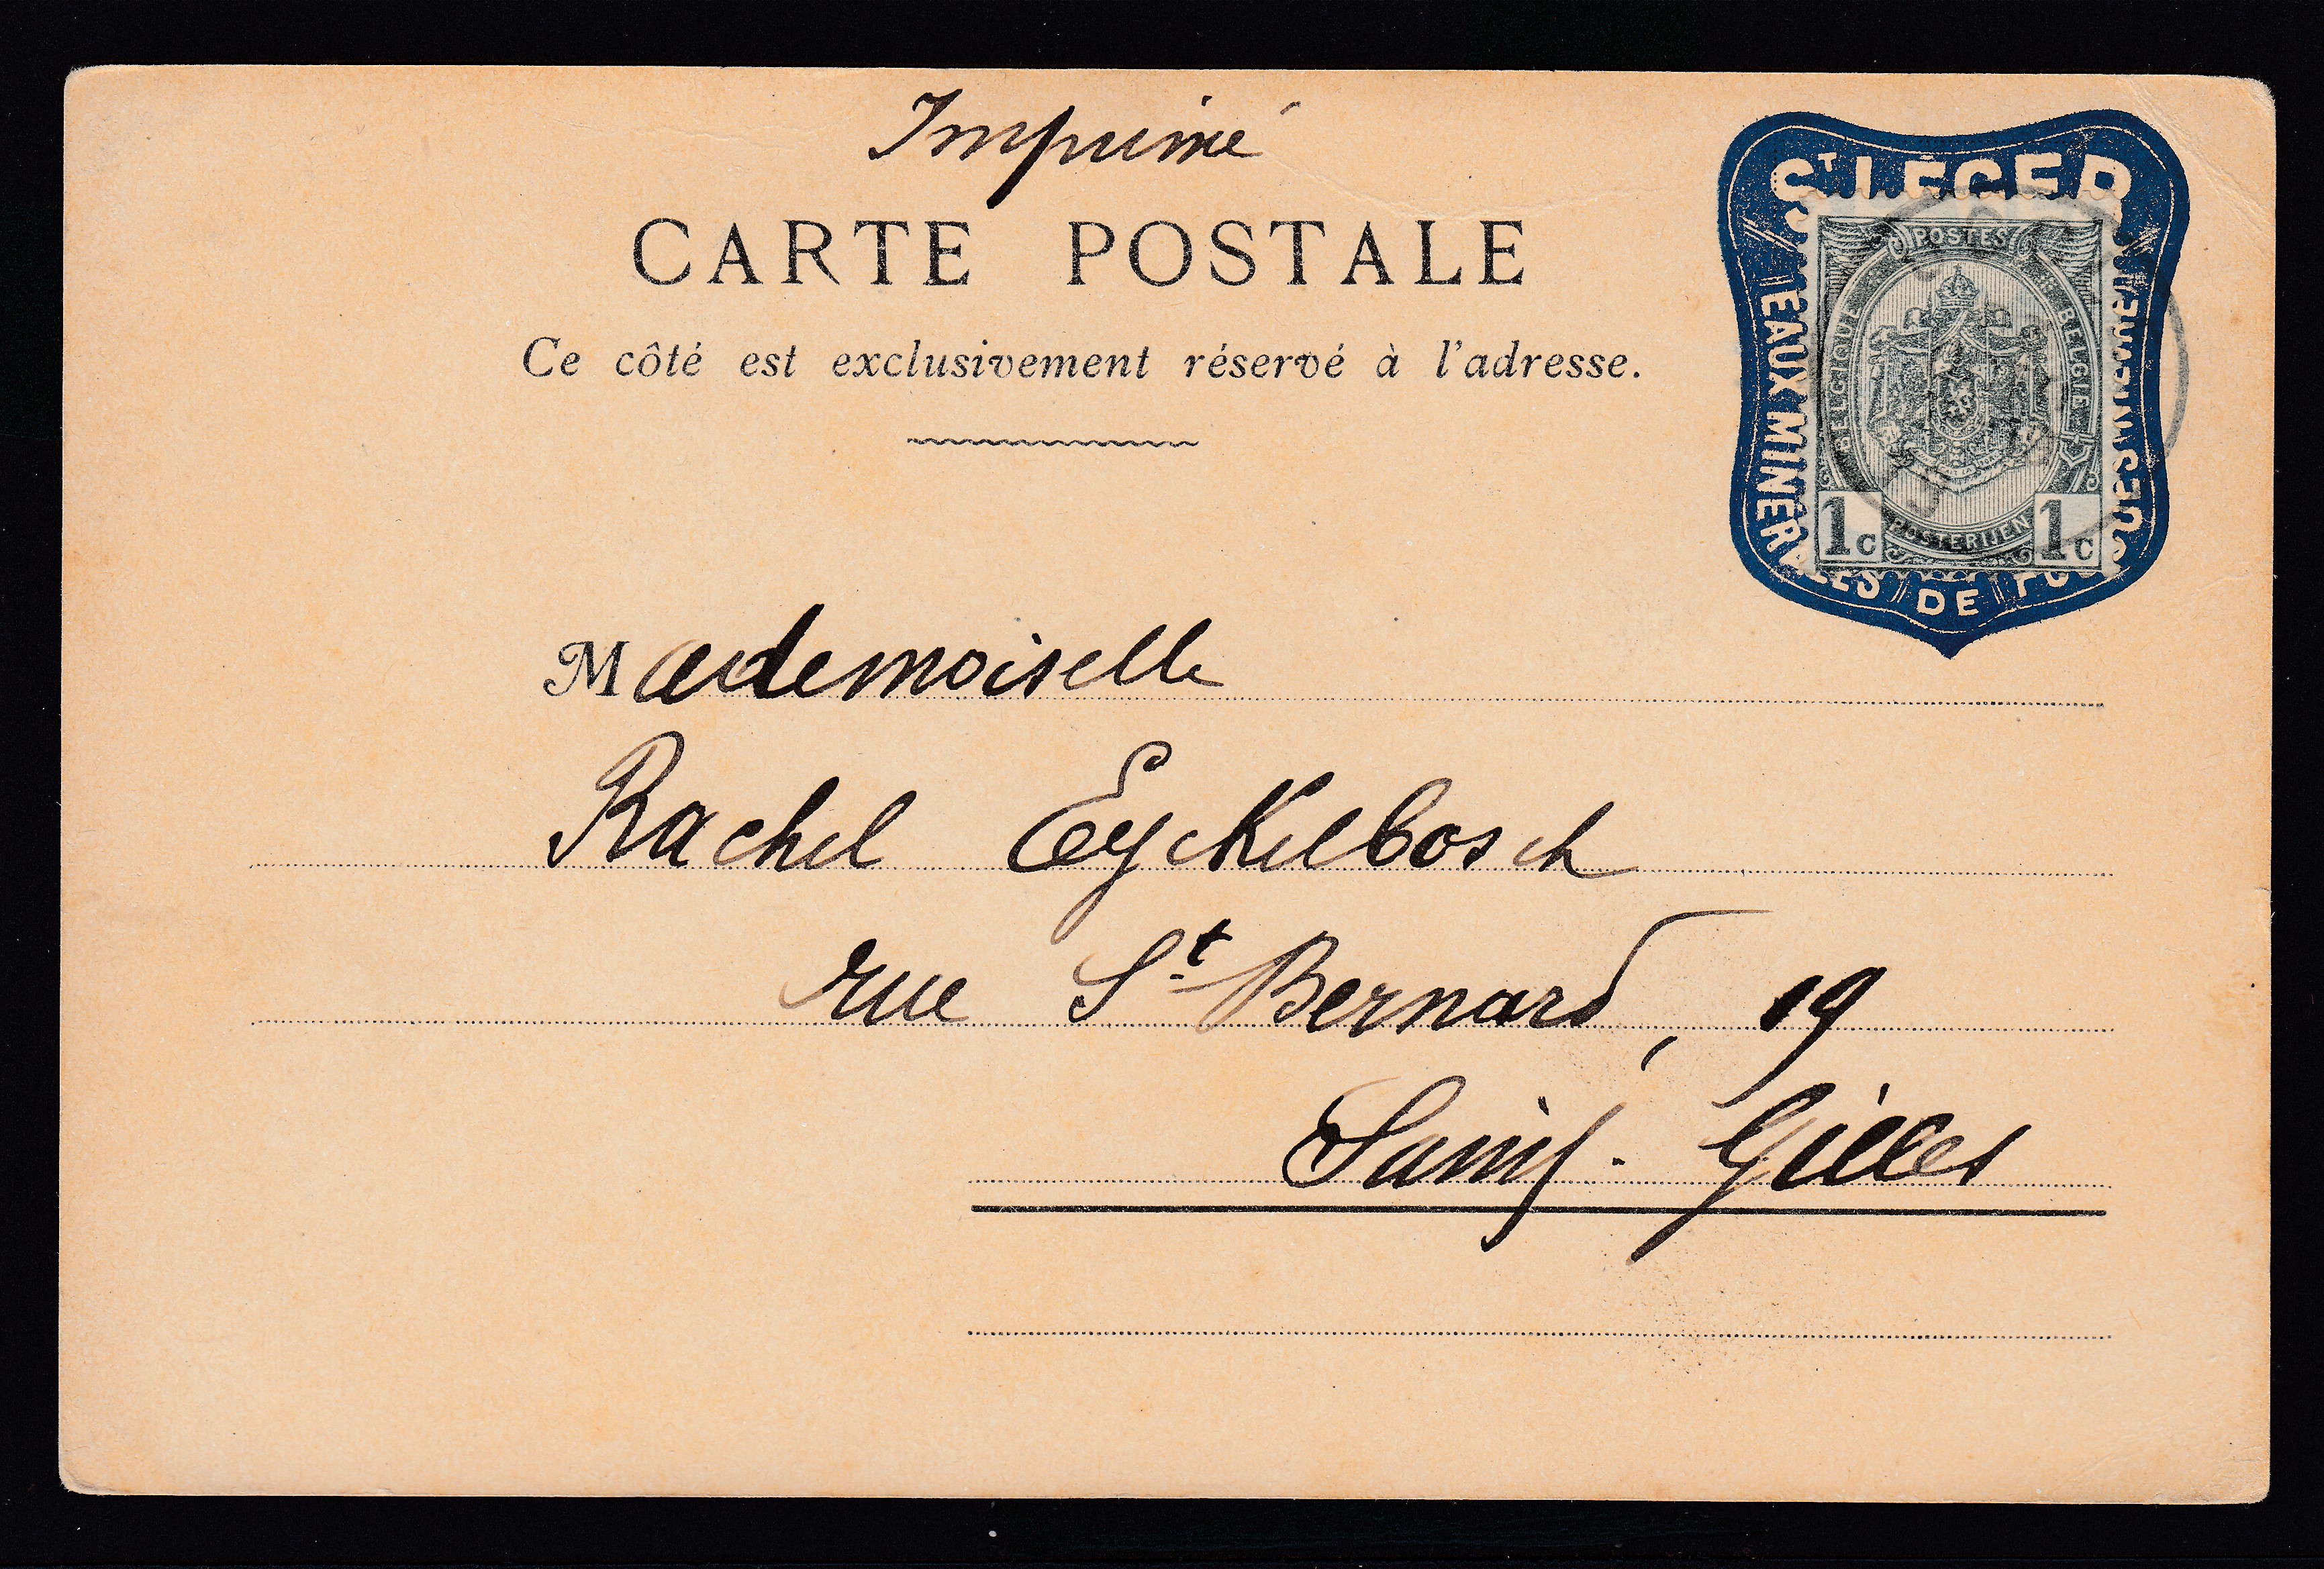 Imprimé
CARTE POSTALE
Ce côté est exclusivement réservé à l'adresse.
ST LÉGER
EAUX MINERALES DE
POSTES
BELGIQUE
BELGIE
POSTERIJEN
1c 1c
Mademoiselle
Rachel Eyckelbosch
rue St Bernard, 19
Saint-Gilles